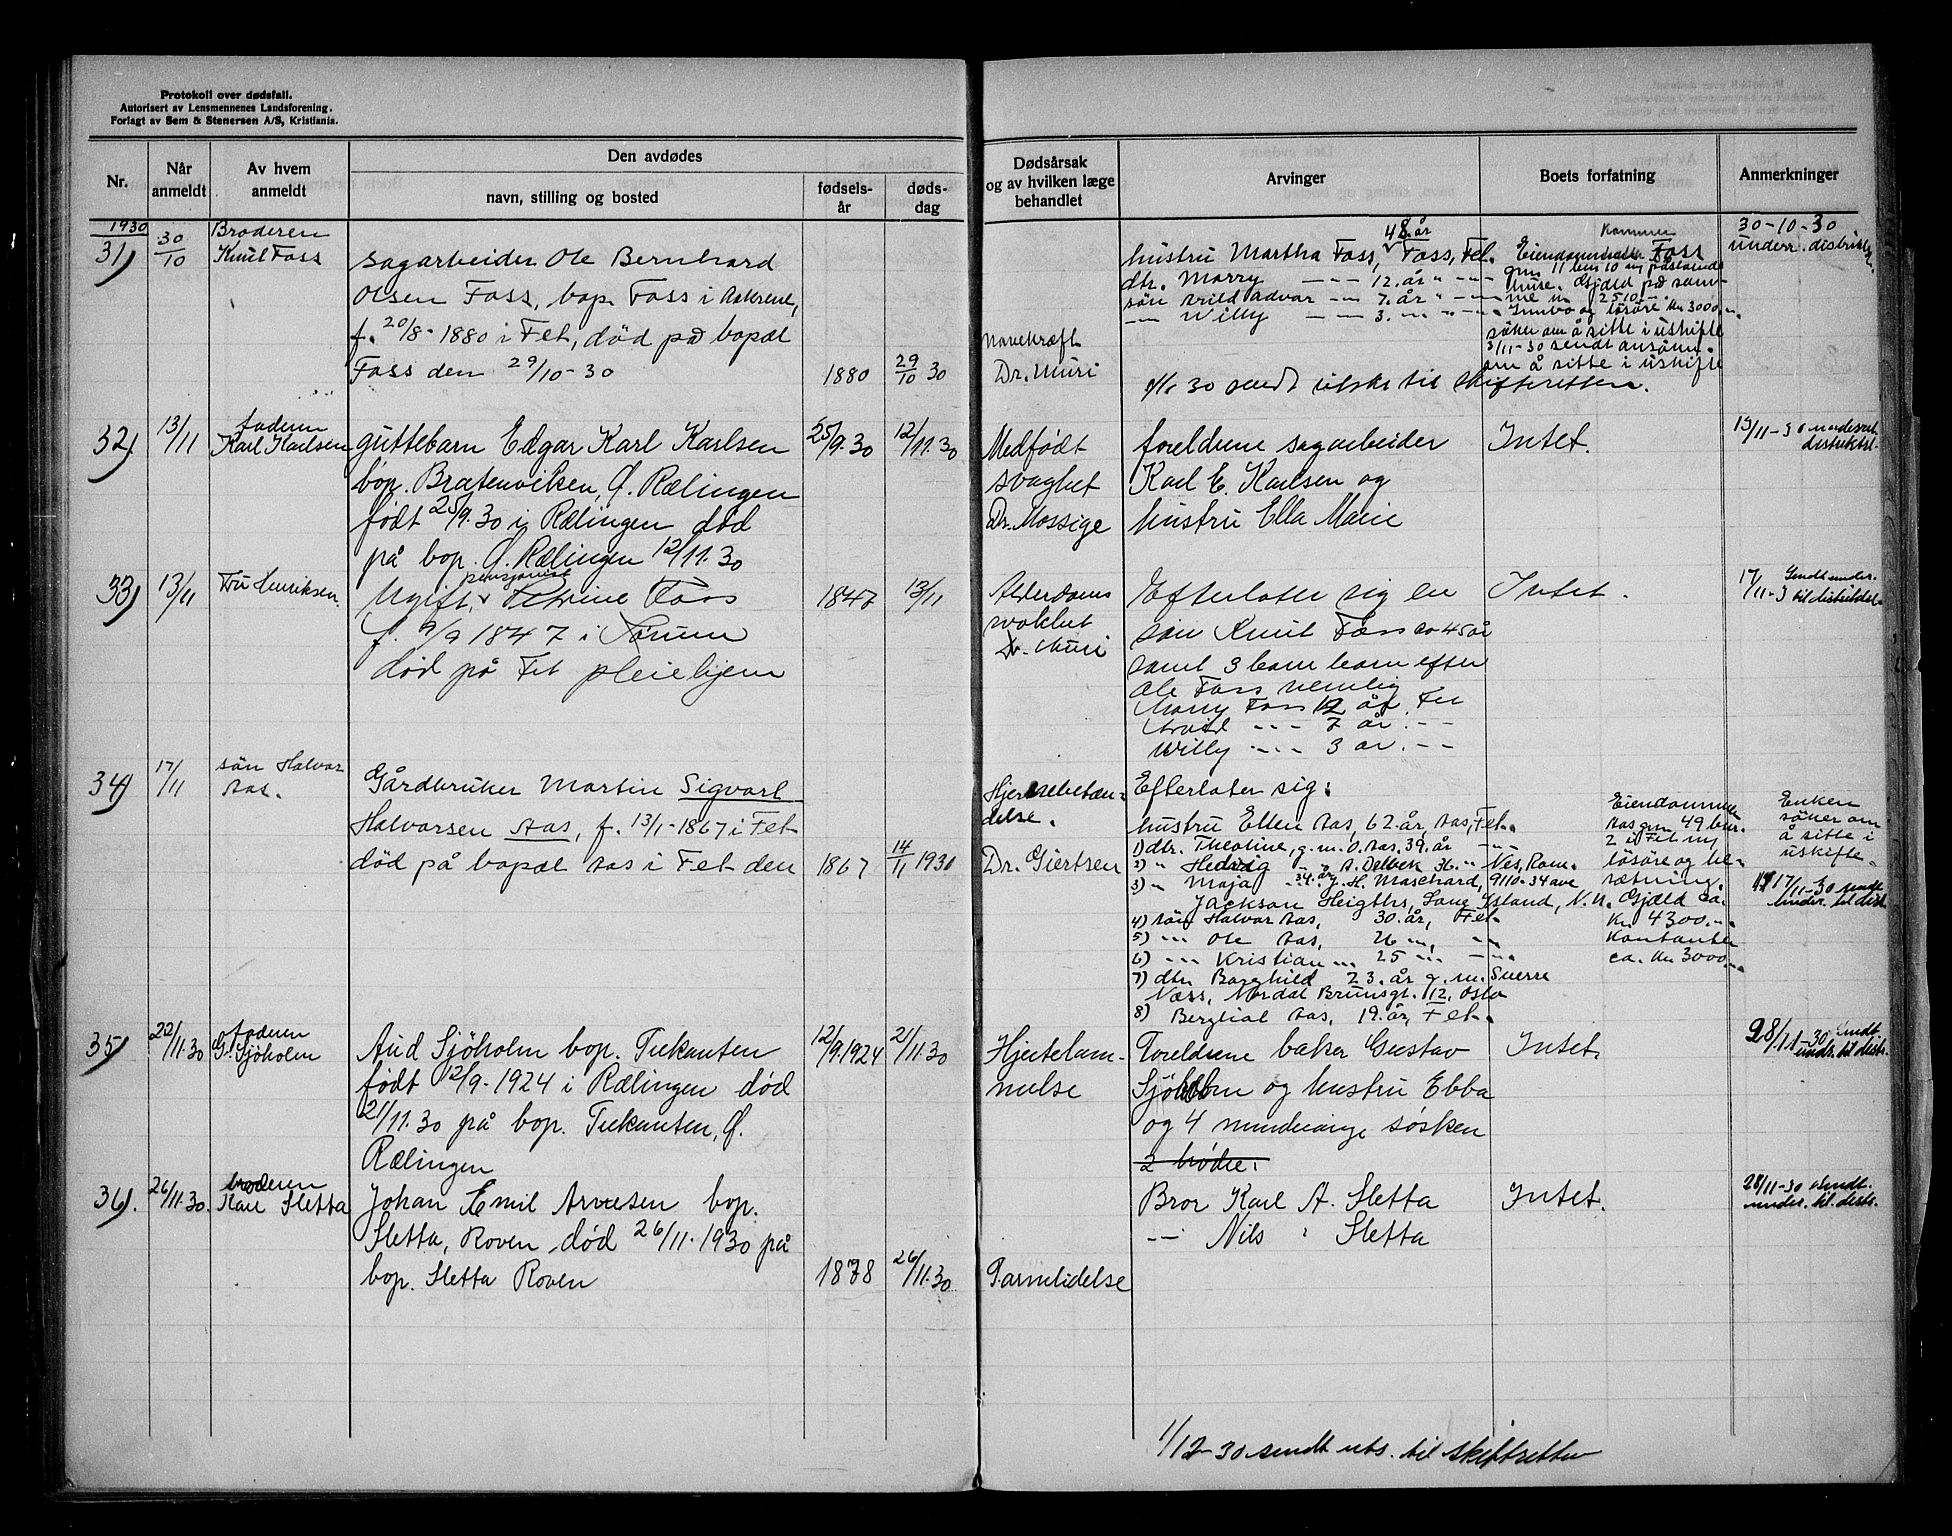 Protokoll over dødsfall.
Autorisert av Lensmennenes Landsforening.
Forlagt av Sem & Stenersen A/S, Kristiania.
Nr.
Når anmeldt
Av hvem anmeldt
Den avdødes
navn, stilling og bosted
fødsels-år
døds-dag
Dødsårsak og av hvilken læge behandlet
Arvinger
Boets forfatning
Anmerkninger
1930
31)
30/10
Broderen
Knut Foss
sagarbeider Ole Bernhard
Olsen Foss, bop. Foss i
f. 20/8-1880 i Fet, død på bopæl
Foss den 29/10-30
1880
29/10 30
Mavekræft
Dr. Muri
48 år
hustru Martha Foss, Foss, Fet.
dtr. Marry --- 12. år " --
søn --- 7. år " --
--- Willy --- 3. --- " --
Eiendommen Foss
gnr 11 bnr 10 m/ påstående
huse. Gjæld på sam-
me kr 2510.--
Innbo og løsøre kr 3000.--
søker om å sitte i uskifte
3/11-30 sendt ansøkn.
om å sitte i uskifte
30 sendt utskr. til skifteretten.
30-10-30
underr. distriktsl.
32)
13/11
faderen
Karl Karlsen
guttebarn Edgar Karl Karlsen
bop. Bratenviken, Ø. Rælingen
født 25/9.30 i Rælingen død
på bop. Ø. Rælingen 12/11.30
25/9.30
12/11.30
Medfødt
svaghet
Dr. Mossige
foreldrene sagarbeider
Karl E. Karlsen og
hustru Ella Marie
Intet.
13/11-30 underret
distriktsl.
33)
13/11
Fru Henriksen.
pensjonist
Ugift, Petrine Foss
f. 9/9 1847 i Sørum
død på Fet pleiehjem
1847
13/11
Alderdoms
svakhet
Dr. Muri
Efterlater sig en
søn Knut Foss ca 45 år
samt 3 barnebarn efter
Ole Foss nemlig
Marry Foss 12 år. Fet
--- 7 år. --
Willy --- 3 år. --
Intet.
17/11-3 Sendt under.
til distriktsl.
34)
17/11
søn Halvor
Aas.
Gårdbruker Martin Sigvart
Halvorsen Aas, f. 13/1-1867 i Fet
død på bopæl Aas i Fet den
1867
14/11 1930
Hjernebetæn-
delse.
Dr. Giertsen
Efterlater sig:
hustru Ellen Aas, 62. år, Aas, Fet.
1) dtr. Theoline, g.m. O. Aas, 39. år --
2) " Hedvig " " A. Delbek 36. " Nes, Rom.
3) " Maja 34. år g. H. Maschard, 9110-34 ave
Jackson Heigths, Long Island, N.
4) søn Halvor Aas, 30. år, Fet.
5) --- Ole Aas, 26 --, --
6) --- Kristian --- 25 --- --
7) dtr. Borghild 23. år g. m. Sverre
Næss, Nordal Brunsgt. 12, Oslo
8) Bergliot Aas, 19. år, Fet.
Eiendommen
Aas gnr 49 bnr.
2 i Fet m/
løsøre og be-
sætning.
Gjæld ca.
kr. 4300.--
Kontanter
ca. kr 3000.--
Enken
søker om
å sitte i
uskifte.
17/11-30 sendt
under. til distr.
35)
22/11.30
faderen
G. Sjöholm
Aud Sjöholm bop. Tuekanten
født 12/9-1924 i Rælingen død
21/11.30 på bop. Tuekanten, Ø.
Rælingen
12/9.1924
21/11.30
Hjertelam-
melse
Foreldrene baker Gustav
Sjöholm og hustru Ebba
og 4 mindreårige søsken
2 brødre.
Intet.
28/11-30 Sendt
undr. til distr.
36).
26/11.30.
broderen
Karl Sletta
Johan Emil Arnesen bop.
Sletta, Roven, død 26/11.1930 på
bop. Sletta Roven
1878
26/11.30
Tarmlidelse
Bror Karl A. Sletta
--- Nils " Sletta
Intet.
28/11-30 Sendt.
under. til distr.
1/12-30 sendt uts. til skifteretten